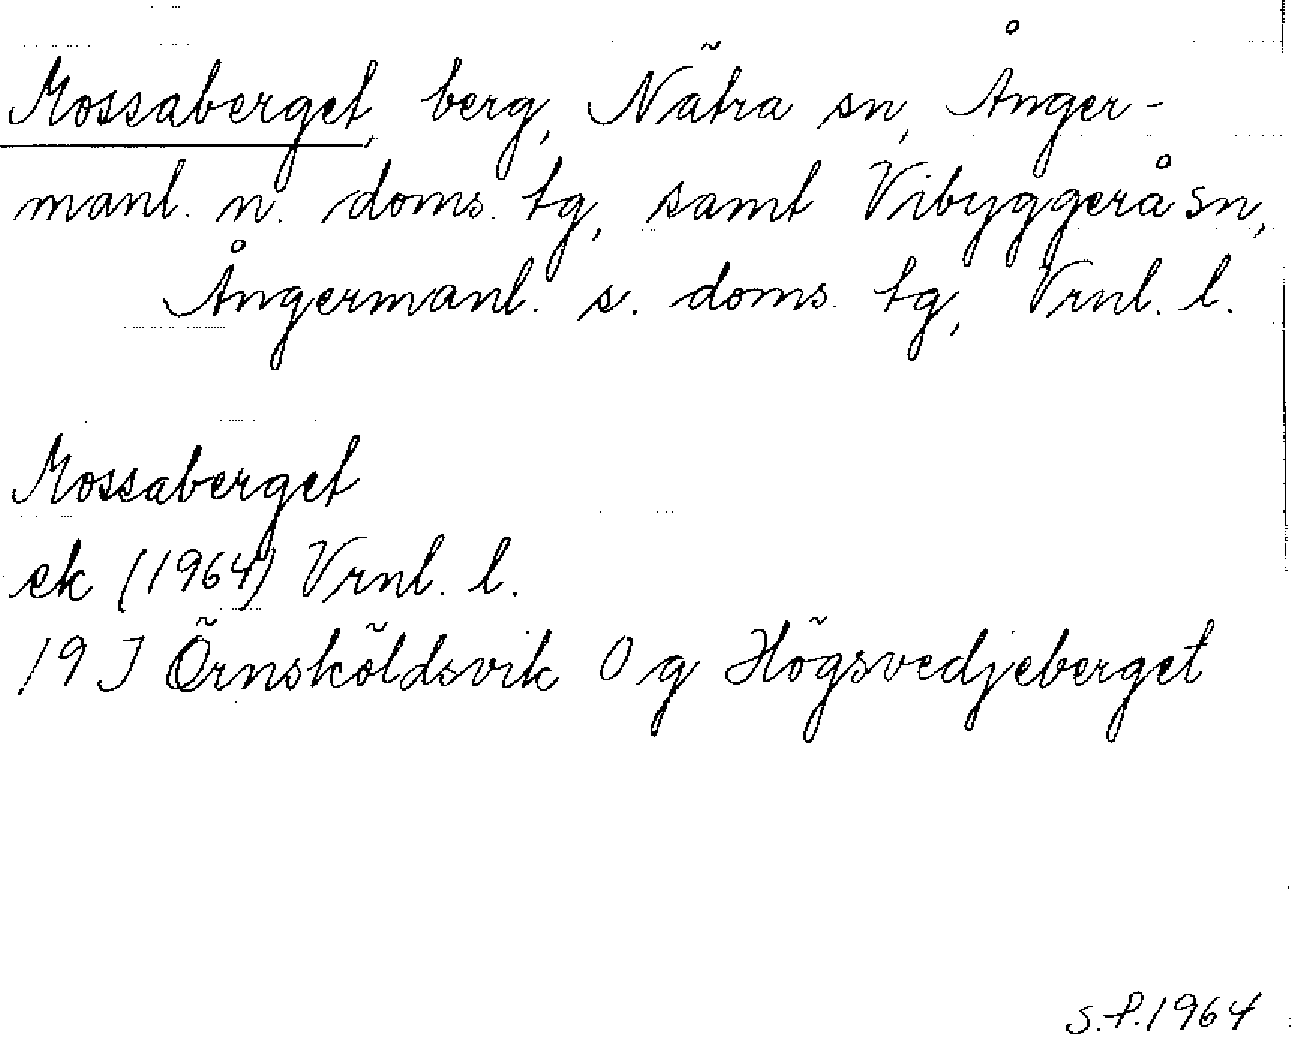 Mossaberget, berg, Nätra sn, Ånger-
manl. n. doms. tg, samt Vibyggerå sn,
Ångermanl. s. doms. tg, Vrnl. l.
Mossaberget
ek (1964) Vrnl. l.
19 J Örnsköldsvik 0 g Högsvedjeberget
S.P. 1964